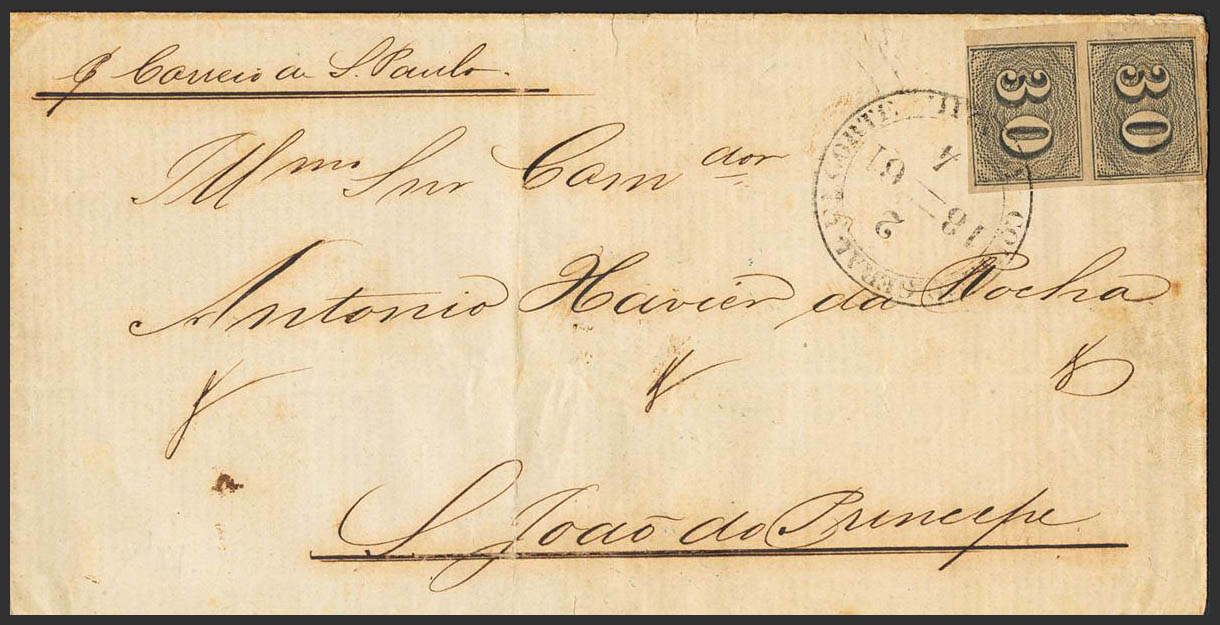 P Correio de S. Paulo.
30 30
Illmo Snr Comdor
4 61
18 2
CORREIO GERAL DA CORTE
Antonio Xavier da Rocha
S. João do Principe